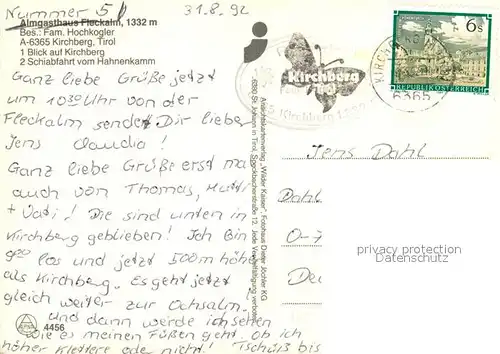 Nummer 5
31.8.92
Almgasthaus Fleckalm, 1332 m
Bes.: Fam. Hochkogler
A-6365 Kirchberg, Tirol
1 Blick auf Kirchberg
2 Schiabfahrt vom Hahnenkamm
Ganz liebe Grüße jetzt
um 1030 Uhr von der
Fleckalm sendet Dir lieber
Jens Claudia!
Ganz liebe Grüße erst mal
auch von Thomas, Mutti
+ Vati! Die sind unten in
Kirchberg geblieben! Ich bin
900 los und jetzt 500m höher
als Kirchberg. Es geht jetzt
gleich weiter zur Ochsalm!
und dann werde ich sehen
wie es meinen Füßen geht, ob ich
höher klettere oder nicht! Tschüß bis
4456
Alpenlandkartenverlag „Wilder Kaiser“ Fotohaus Dieter Jöchler KG
6380 St. Johann in Tirol, Speckbacherstraße 12, Jede Vervielfältigung verboten
Kirchberg
6s
REPUBLIK ÖSTERREICH
6365
Jens Dahl
Dahl
0-7
De
privacy protection
Datenschutz